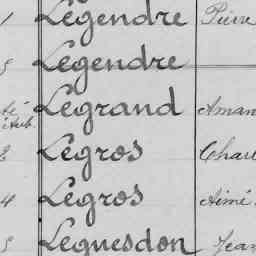 1 Legendre Pierre
5 Legendre
Legrand Aman
Legros Charl
4 Legros Aimé
5 Leguesdon Jean